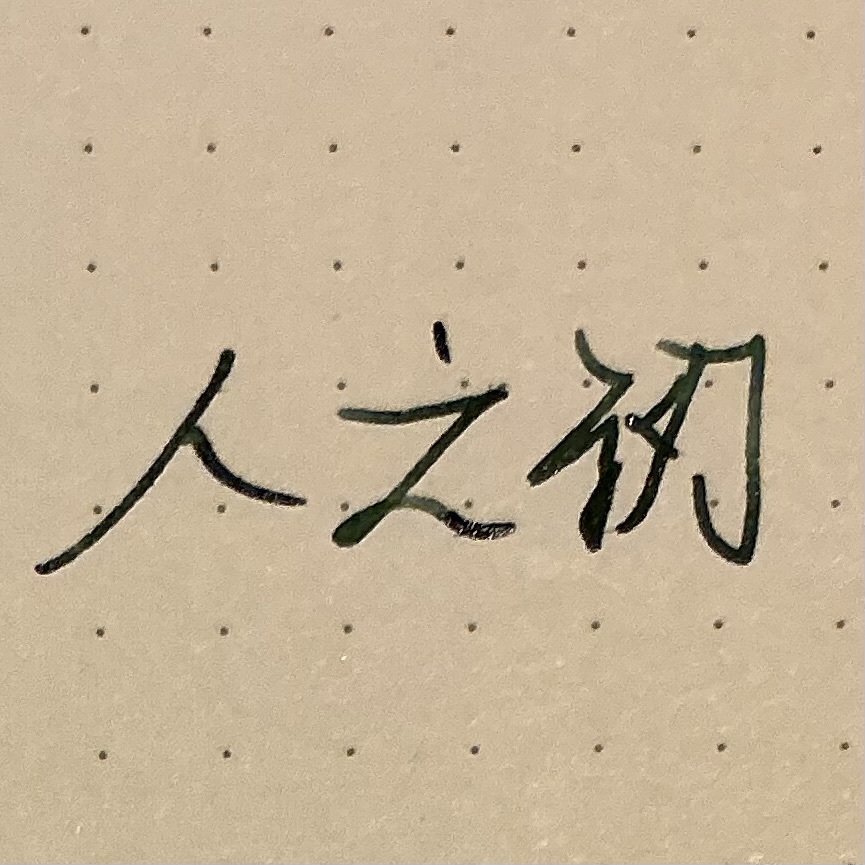 人之初